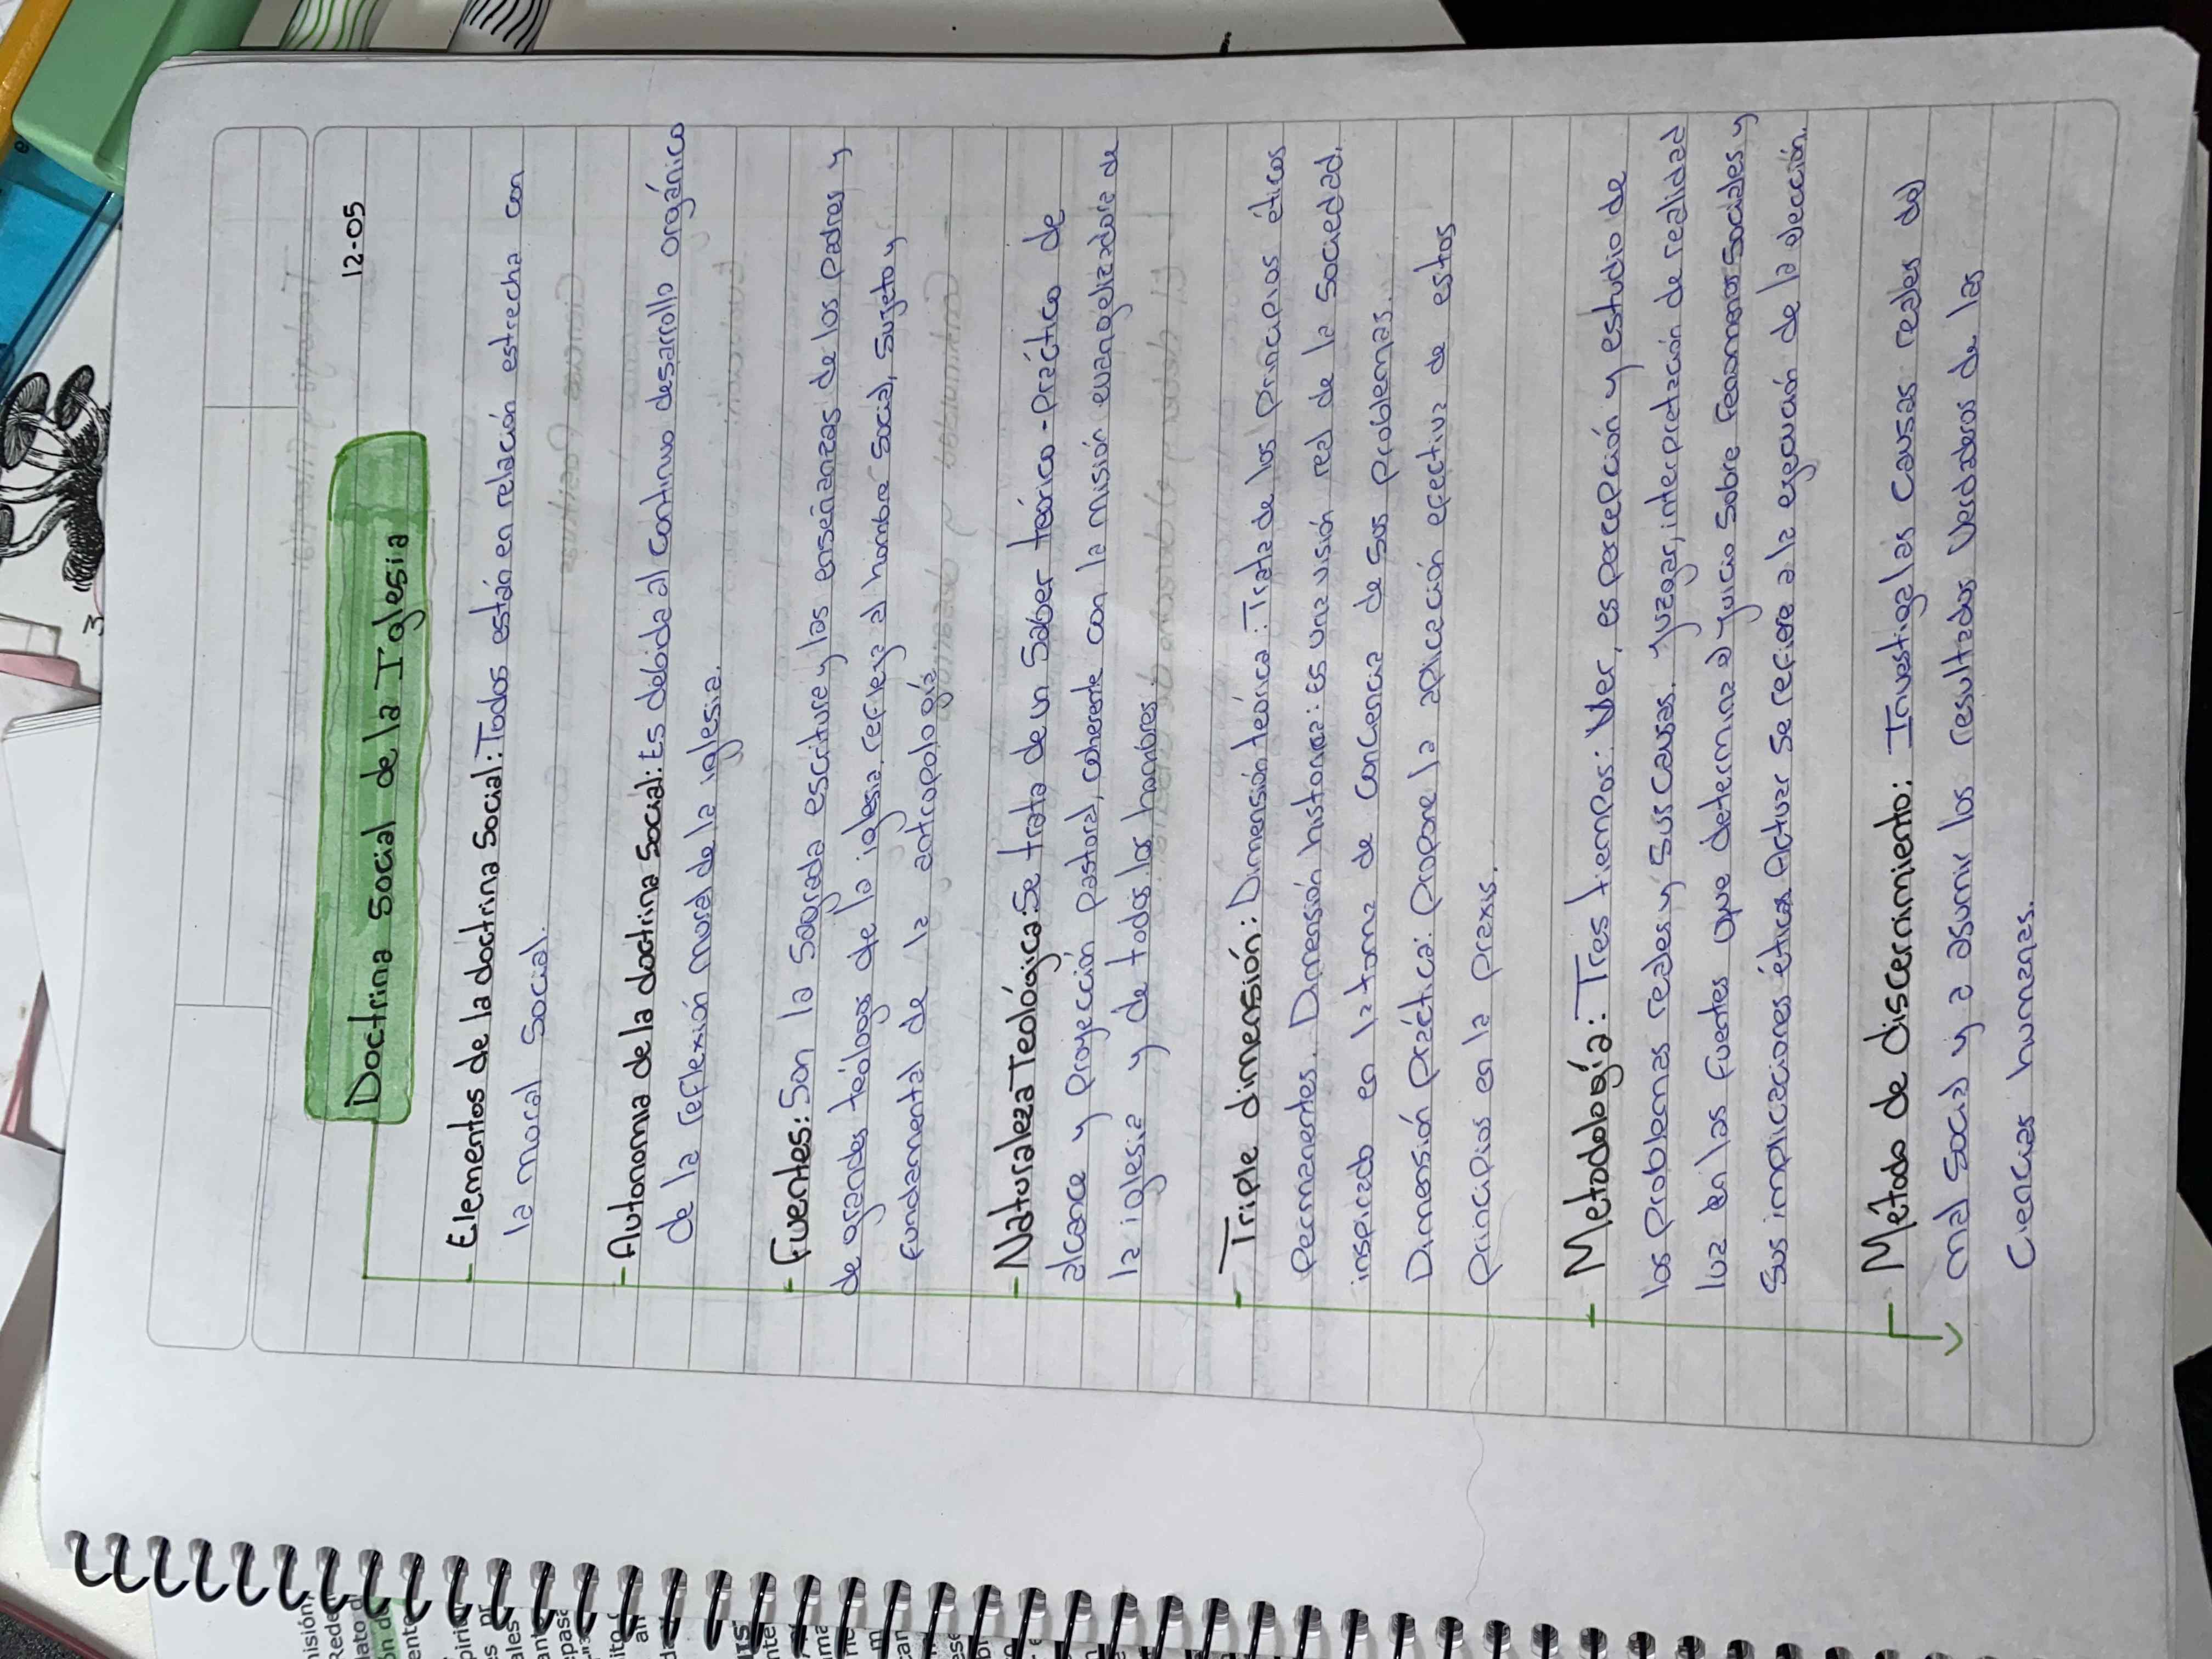 12-05
Doctrina Social de la Iglesia
- Elementos de la doctrina Social: Todos están en relación estrecha con
la moral Social.
- Autonomia de la doctrina Social: Es debida al Continuo desarrollo orgánico
de la reflexión moral de la iglesia.
- Fuentes: Son la Sagrada escritura y las enseñanzas de los Padres y
de grandes teólogos de la iglesia, reflexa al hombre Social, Sujeto y
fundamental de la antropología
- Naturaleza Teológica: Se trata de un Saber teórico-práctico de
alcance y proyección pastoral, coherente con la misión evangelizadora de
la iglesia y de todos los hombres.
- Triple dimensión: Dimensión teórica: Trata de los principios éticos
Permanentes. Dimensión historica: Es una visión real de la Sociedad,
inspirado en la toma de conciencia de sus problemas.
Dimensión Práctica: propone la aplicación efectiva de estos
principios en la praxis.
- Metodología: Tres tiempos: Ver, es percepción y estudio de
los Problemas reales y sus causas. Juzgar, interpretación de realidad
luz en las fuentes que determina el Juicio Sobre Fenomenos Sociales y
Sus implicaciones éticas Actuar Se refiere a la ejecución de la elección.
Método de discernimiento: Investiga las Causas reales del
mal Social y a asumir los resultados Verdaderos de las
Ciencias humanas.
3